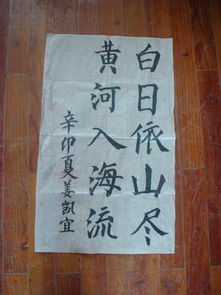 白日依山尽
黄河入海流
辛卯夏姜凯宜